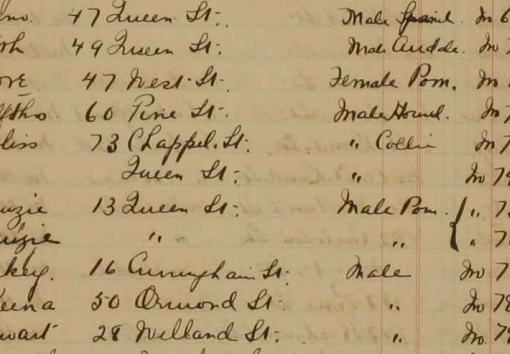 no. 47 Queen St. Male Spanl. No 6
th 49 Queen St. Male No 7
ore 47 West St. Female Pom. No
60 Pine St. Male Hound. No 7
liss 73 Chappel. St. " Collie No 7
Queen St. " No 79
enzie 13 Queen St. Male Pom. { " 7
enzie " " " 7
key. 16 Cunningham St. Male No 7
eena 50 Ormond St. " No 78
wart 28 Welland St. " No 79